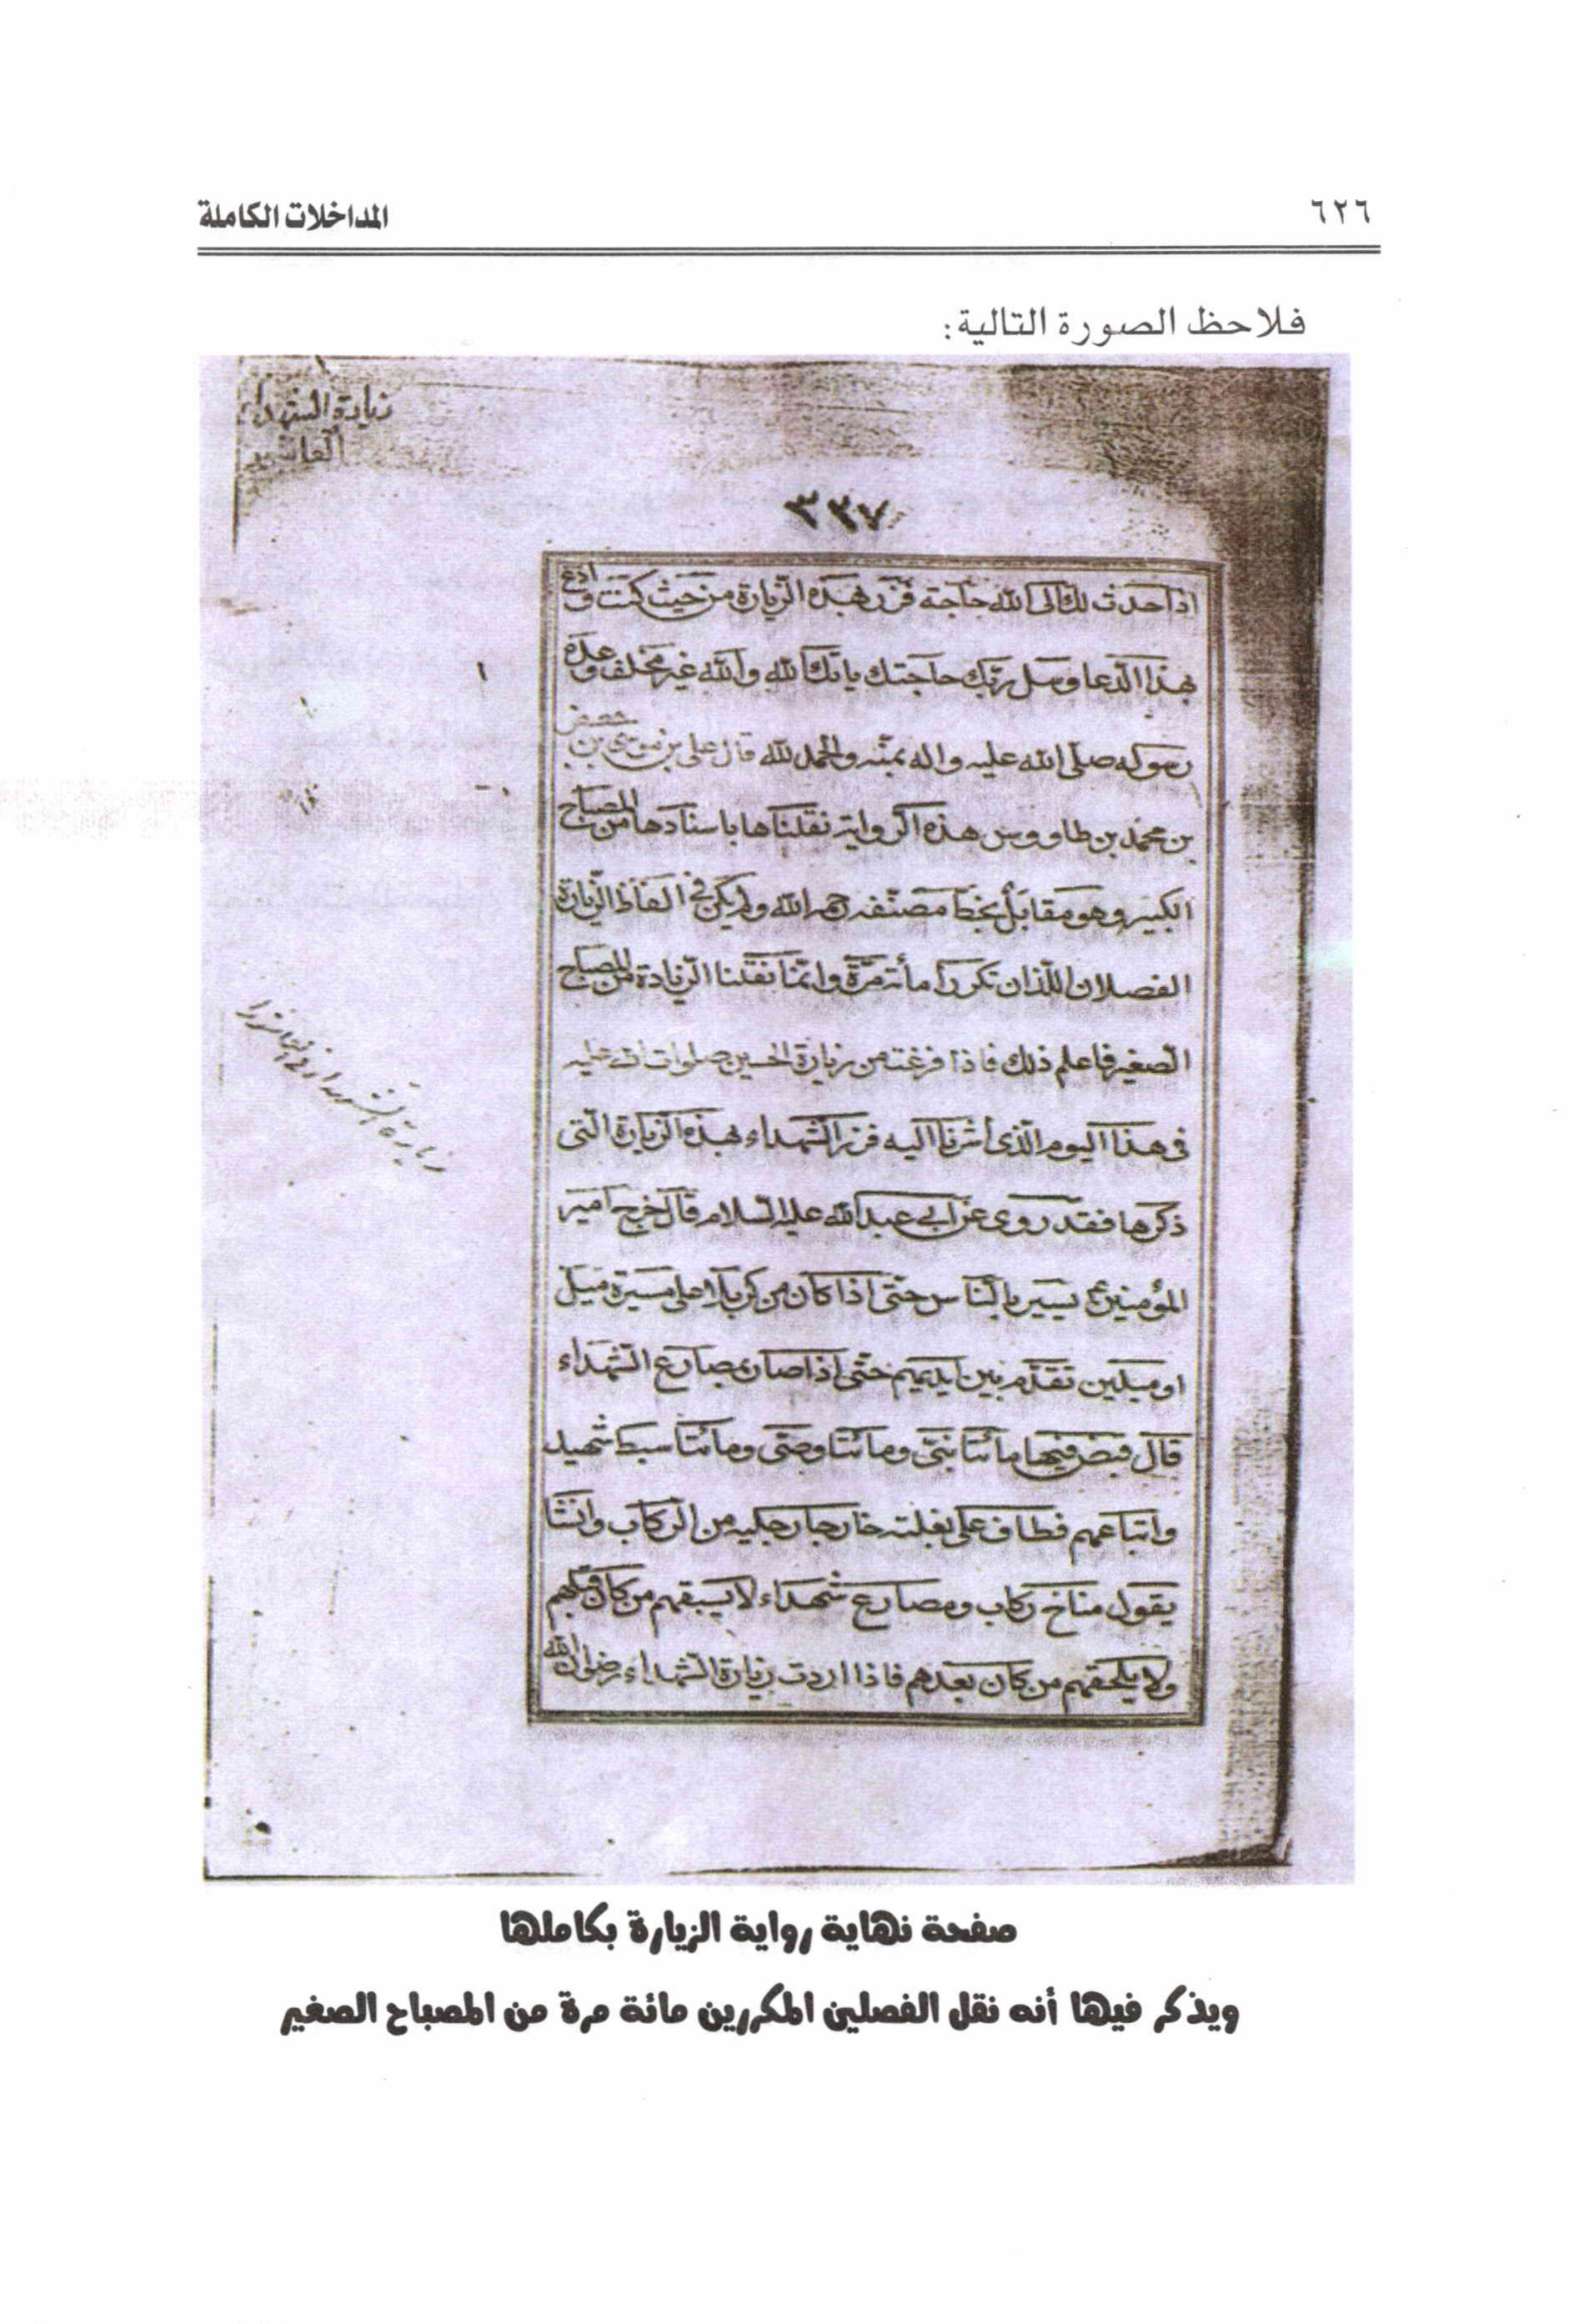 ٦٢٦
المداخلات الكاملة
فلاحظ الصورة التالية:
زيادة الشهداء
العاشر
٣٣٧
اذا حدث لك الى الله حاجة فزر بهذه الزيارة من حيث كنت وادع
بهذا الدعا وسل ربك حاجتك ياتك الله والله غير مخلف وعده
رسوله صلى الله عليه واله بمنه والحمد لله قال على بن موسى بن جعفر
بن محمد بن طاووس هذه الرواية نقلناها باسنادها من المصباح
الكبير وهو مقابل بخط مصنفه رحمه الله ولم يكن في الفاظ الزيارة
الفصلان اللذان تكررا مأئة مرة وانما نقلنا الزيادة من المصباح
الصغير فاعلم ذلك فاذا فرغت من زيارة الحسين صلوات الله عليه
في هذا اليوم الذى أشرنا اليه فزر الشهداء بهذه الزيارة التى
ذكرها فقد روى عن ابي عبد الله عليه السلام قال خرج امير
المؤمنين ع يسير بالناس حتى اذا كان من كربلا على مسيرة ميل
او ميلين تقدم بين ايديهم حتى اذا صار بمصارع الشهداء
قال قبض فيها مائتا نبى ومائتا وصى ومائتا سبط شهيد
واتباعهم فطاف على بغلته خارجا رجليه من الركاب وانشا
يقول مناخ ركاب ومصارع شهداء لا يسبقهم من كان قبلهم
ولا يلحقهم من كان بعدهم فاذا اردت زيارة الشهداء رضوان الله
زيارة الشهداء في عاشورا
صفحة نهاية رواية الزيارة بكاملها
ويذكر فيها أنه نقل الفصلين المكررين مائة مرة من المصباح الصغير